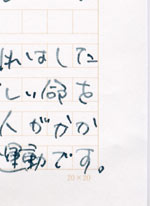 ればした
しい命を
人がかか
運動です。
20×20